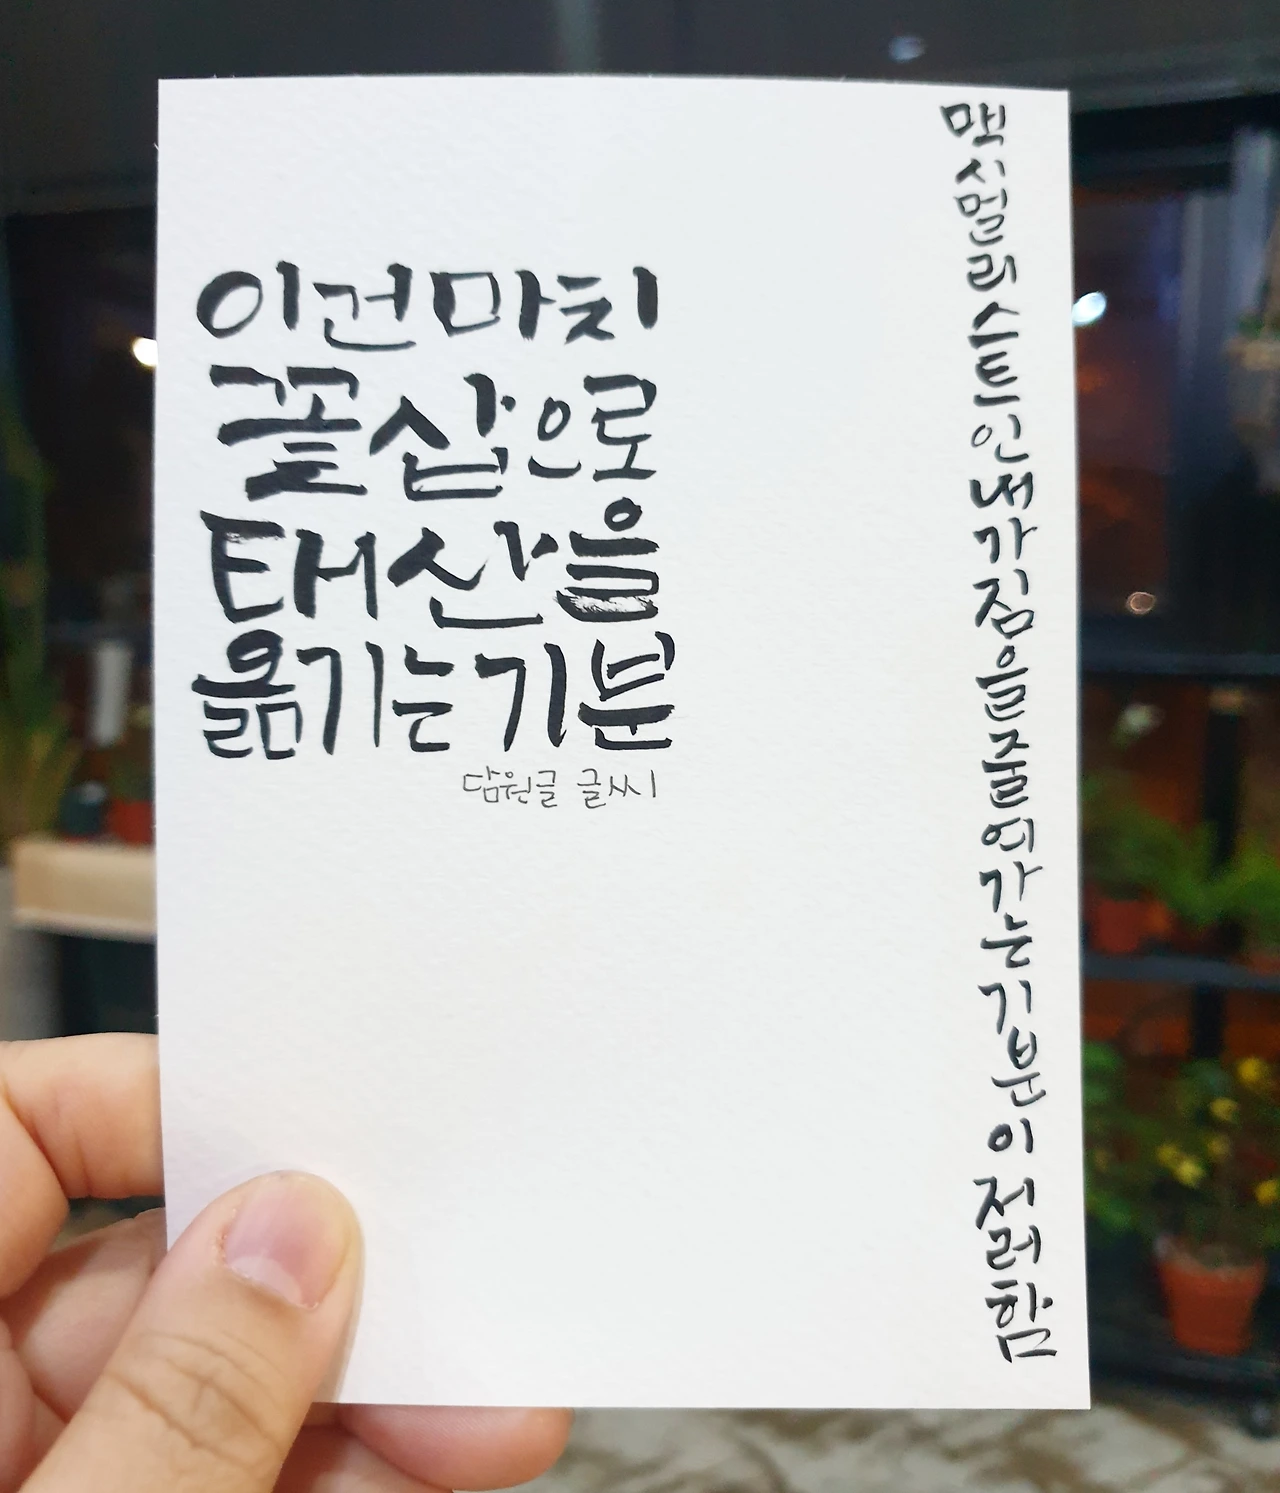 이건 마치
꽃삽으로
태산을
옮기는 기분
담원글 글씨
맥시멀리스트인 내가 짐을 줄여가는 기분이 저러함